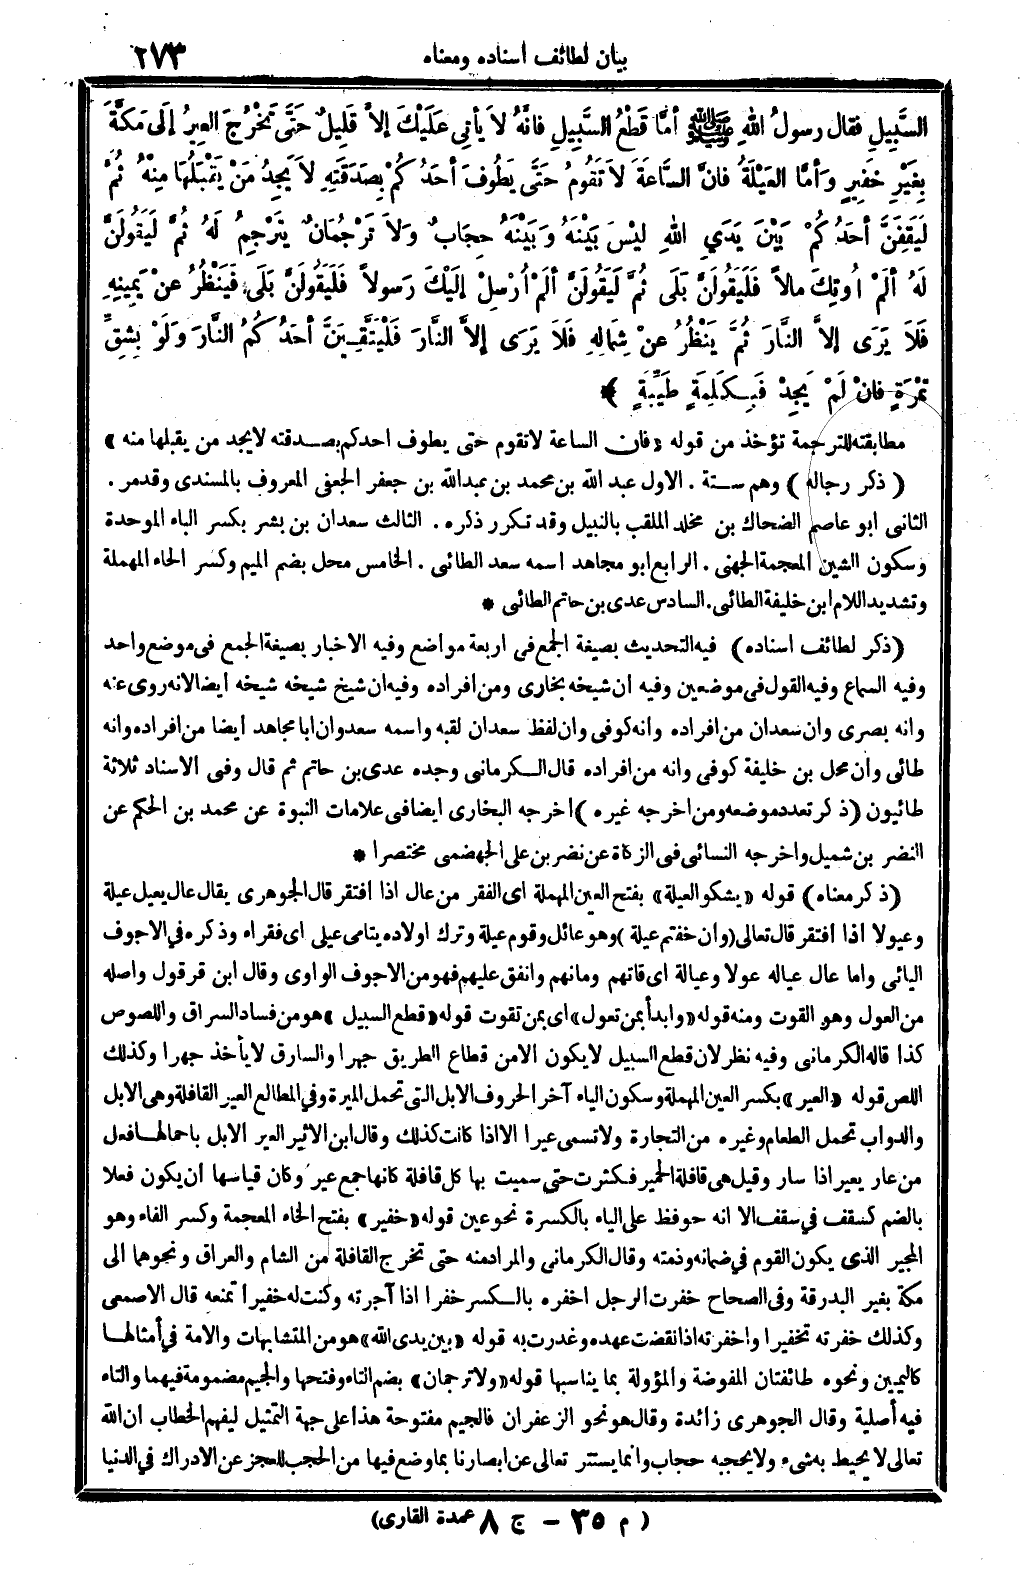 بيان لطائف اسناده ومعناه ٢٧٣
السَّبِيلِ فقال رسولُ اللهِ ﷺ أمَّا قَطْعُ السَّبِيلِ فانَّهُ لاَ يأتِي عَلَيْكَ إلاَّ قَلِيلٌ حَتَّى تَخْرُجَ العِيرُ إلَى مَكَّةَ
بِغَيْرِ خَفِيرٍ وَأمَّا العَيْلَةُ فانَّ السَّاعَةَ لاَ تَقُومُ حَتَّى يَطُوفَ أحَدُ كُمْ بِصَدَقَتِهِ لاَ يَجِدُ مَنْ يَقْبَلُهَا مِنْهُ ثُمَّ
لَيَقِفَنَّ أحَدُ كُمْ بَيْنَ يَدَيِ اللهِ لَيْسَ بَيْنَهُ وَبَيْنَهُ حِجَابٌ وَلاَ تَرْجُمَانٌ يتَرْجِمُ لَهُ ثُمَّ لَيَقُولَنَّ
لَهُ ألَمْ أُوتِكَ مالاً فَلَيَقُولَنَّ بَلَى ثُمَّ لَيَقُولَنَّ ألَمْ أُرْسِلْ إلَيْكَ رَسولاً فَلَيَقُولَنَّ بَلَى فَيَنْظُرُ عنْ يَمِينِهِ
فَلاَ يَرَى إلاَّ النَّارَ ثُمَّ يَنْظُرُ عنْ شِمَالِهِ فَلاَ يَرَى إلاَّ النَّارَ فَلْيَتَّقِيَنَّ أحَدُ كُمُ النَّارَ وَلَوْ بِشِقِّ
تَمْرَةٍ فانْ لَمْ يَجِدْ فَبِكَلِمَةٍ طَيِّبَةٍ ﴾
مطابقته للترجمة تؤخذ من قوله «فان الساعة لا تقوم حتى يطوف احدكم بصدقته لا يجد من يقبلها منه»
(ذكر رجاله) وهم ستة . الاول عبد الله بن محمد بن عبد الله بن جعفر الجعفي المعروف بالمسندى وقد مر .
الثانى ابو عاصم الضحاك بن مخلد الملقب بالنبيل وقد تكرر ذكره . الثالث سعدان بن بشر بكسر الباء الموحدة
وسكون الشين المعجمة الجهنى . الرابع ابو مجاهد اسمه سعد الطائى . الخامس محل بضم الميم وكسر الحاء المهملة
وتشديد اللام ابن خليفة الطائى . السادس عدى بن حاتم الطائى *
(ذكر لطائف اسناده) فيه التحديث بصيغة الجمع فى اربعة مواضع وفيه الاخبار بصيغة الجمع فى موضع واحد
وفيه السماع وفيه القول فى موضعين وفيه ان شيخه بخارى ومن افراده وفيه ان شيخ شيخه شيخه ايضا لانه روى عنه
وانه بصرى وان سعدان من افراده وانه كوفى وان لفظ سعدان لقبه واسمه سعد وان ابا مجاهد ايضا من افراده وانه
طائى وان محل بن خليفة كوفى وانه من افراده قال الكرمانى وجده عدى بن حاتم ثم قال وفى الاسناد ثلاثة
طائيون (ذكر تعدد موضعه ومن اخرجه غيره) اخرجه البخارى ايضا فى علامات النبوة عن محمد بن الحكم عن
النضر بن شميل واخرجه النسائى فى الزكاة عن نضر بن على الجهضمى مختصرا *
(ذكر معناه) قوله «يشكو العيلة» بفتح العين المهملة اى الفقر من عال اذا افتقر قال الجوهرى يقال عال يعيل عيلة
وعيولا اذا افتقر قال تعالى (وان خفتم عيلة) وهو عائل وقوم عيلة وترك اولاده يتامى عيلى اى فقراء وذكره في الاجوف
اليائى واما عال عياله عولا وعيالة اى قاتهم ومانهم وانفق عليهم فهو من الاجوف الواوى وقال ابن قرقول واصله
من العول وهو القوت ومنه قوله «وابدأ بمن تعول» اى بمن تقوت قوله «قطع السبيل» هو من فساد السراق واللصوص
كذا قاله الكرمانى وفيه نظر لان قطع السبيل لا يكون الا من قطاع الطريق جهرا والسارق لا يأخذ جهرا وكذلك
اللص قوله «العير» بكسر العين المهملة وسكون الياء آخر الحروف الابل التى تحمل الميرة وفي المطالع العير القافلة وهى الابل
والدواب تحمل الطعام وغيره من التجارة ولا تسمى عيرا الا اذا كانت كذلك وقال ابن الاثير العير الابل باحمالها فعل
من عار يعير اذا سار وقيل هى قافلة الحمير فكثرت حتى سميت بها كل قافلة كانها جمع عير وكان قياسها ان يكون فعلا
بالضم كسقف في سقف الا انه حوفظ على الياء بالكسرة نحو عين قوله «خفير» بفتح الخاء المعجمة وكسر الفاء وهو
المجير الذى يكون القوم في ضمانه وذمته وقال الكرمانى والمراد منه حتى تخرج القافلة من الشام والعراق ونحوهما الى
مكة بغير البدرقة وفى الصحاح خفرت الرجل اخفره بالكسر خفرا اذا آجرته وكنت له خفيرا تمنعه قال الاصمعى
وكذلك خفرته تخفيرا واخفرته اذا نقضت عهده وغدرت به قوله «بين يدى الله» هو من المتشابهات والامة في أمثالها
كاليمين ونحوه طائفتان المفوضة والمؤولة بما يناسبها قوله «ولا ترجمان» بضم التاء وفتحها والجيم مضمومة فيهما والتاء
فيه أصلية وقال الجوهرى زائدة وقال هو نحو الزعفران فالجيم مفتوحة هذا على جهة التمثيل ليفهم الخطاب ان الله
تعالى لا يحيط به شىء ولا يحجبه حجاب وانما يستتر تعالى عن ابصارنا بما وضع فيها من الحجب للعجز عن الادراك في الدنيا
(م ٣٥ – ج ٨ عمدة القارى)